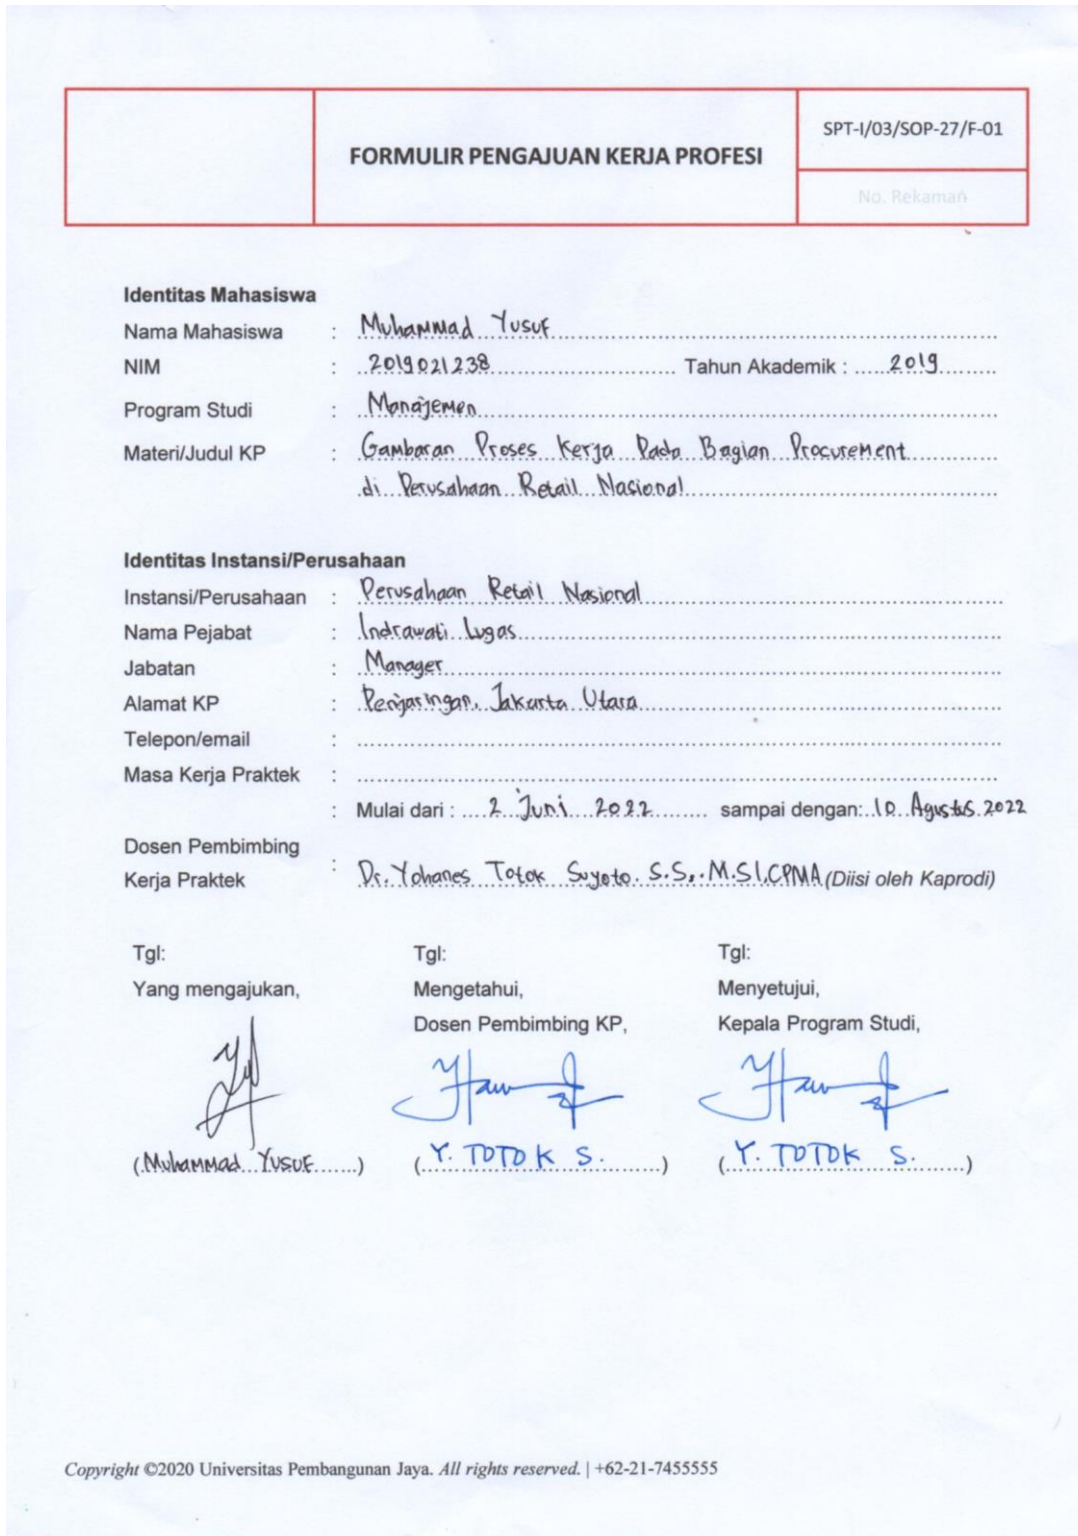 FORMULIR PENGAJUAN KERJA PROFESI
SPT-I/03/SOP-27/F-01
No. Rekaman
Identitas Mahasiswa
Nama Mahasiswa : Muhammad Yusuf
NIM : 2019021238 Tahun Akademik : 2019
Program Studi : Manajemen
Materi/Judul KP : Gambaran Proses Kerja Pada Bagian Procurement
di Perusahaan Retail Nasional
Identitas Instansi/Perusahaan
Instansi/Perusahaan : Perusahaan Retail Nasional
Nama Pejabat : Indrawati Lugas
Jabatan : Manager
Alamat KP : Penjaringan, Jakarta Utara
Telepon/email :
Masa Kerja Praktek :
: Mulai dari : 2 Juni 2022 sampai dengan: 10 Agustus 2022
Dosen Pembimbing
Kerja Praktek : Dr. Yohanes Totok Suyoto. S.S,. M.SI.CPMA (Diisi oleh Kaprodi)
Tgl: Tgl: Tgl:
Yang mengajukan, Mengetahui, Menyetujui,
Dosen Pembimbing KP, Kepala Program Studi,
(Muhammad Yusuf) (Y. TOTOK S.) (Y. TOTOK S.)
Copyright ©2020 Universitas Pembangunan Jaya. All rights reserved. | +62-21-7455555